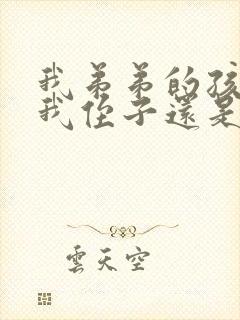 我弟弟的孩
我侄子還是
雲天空